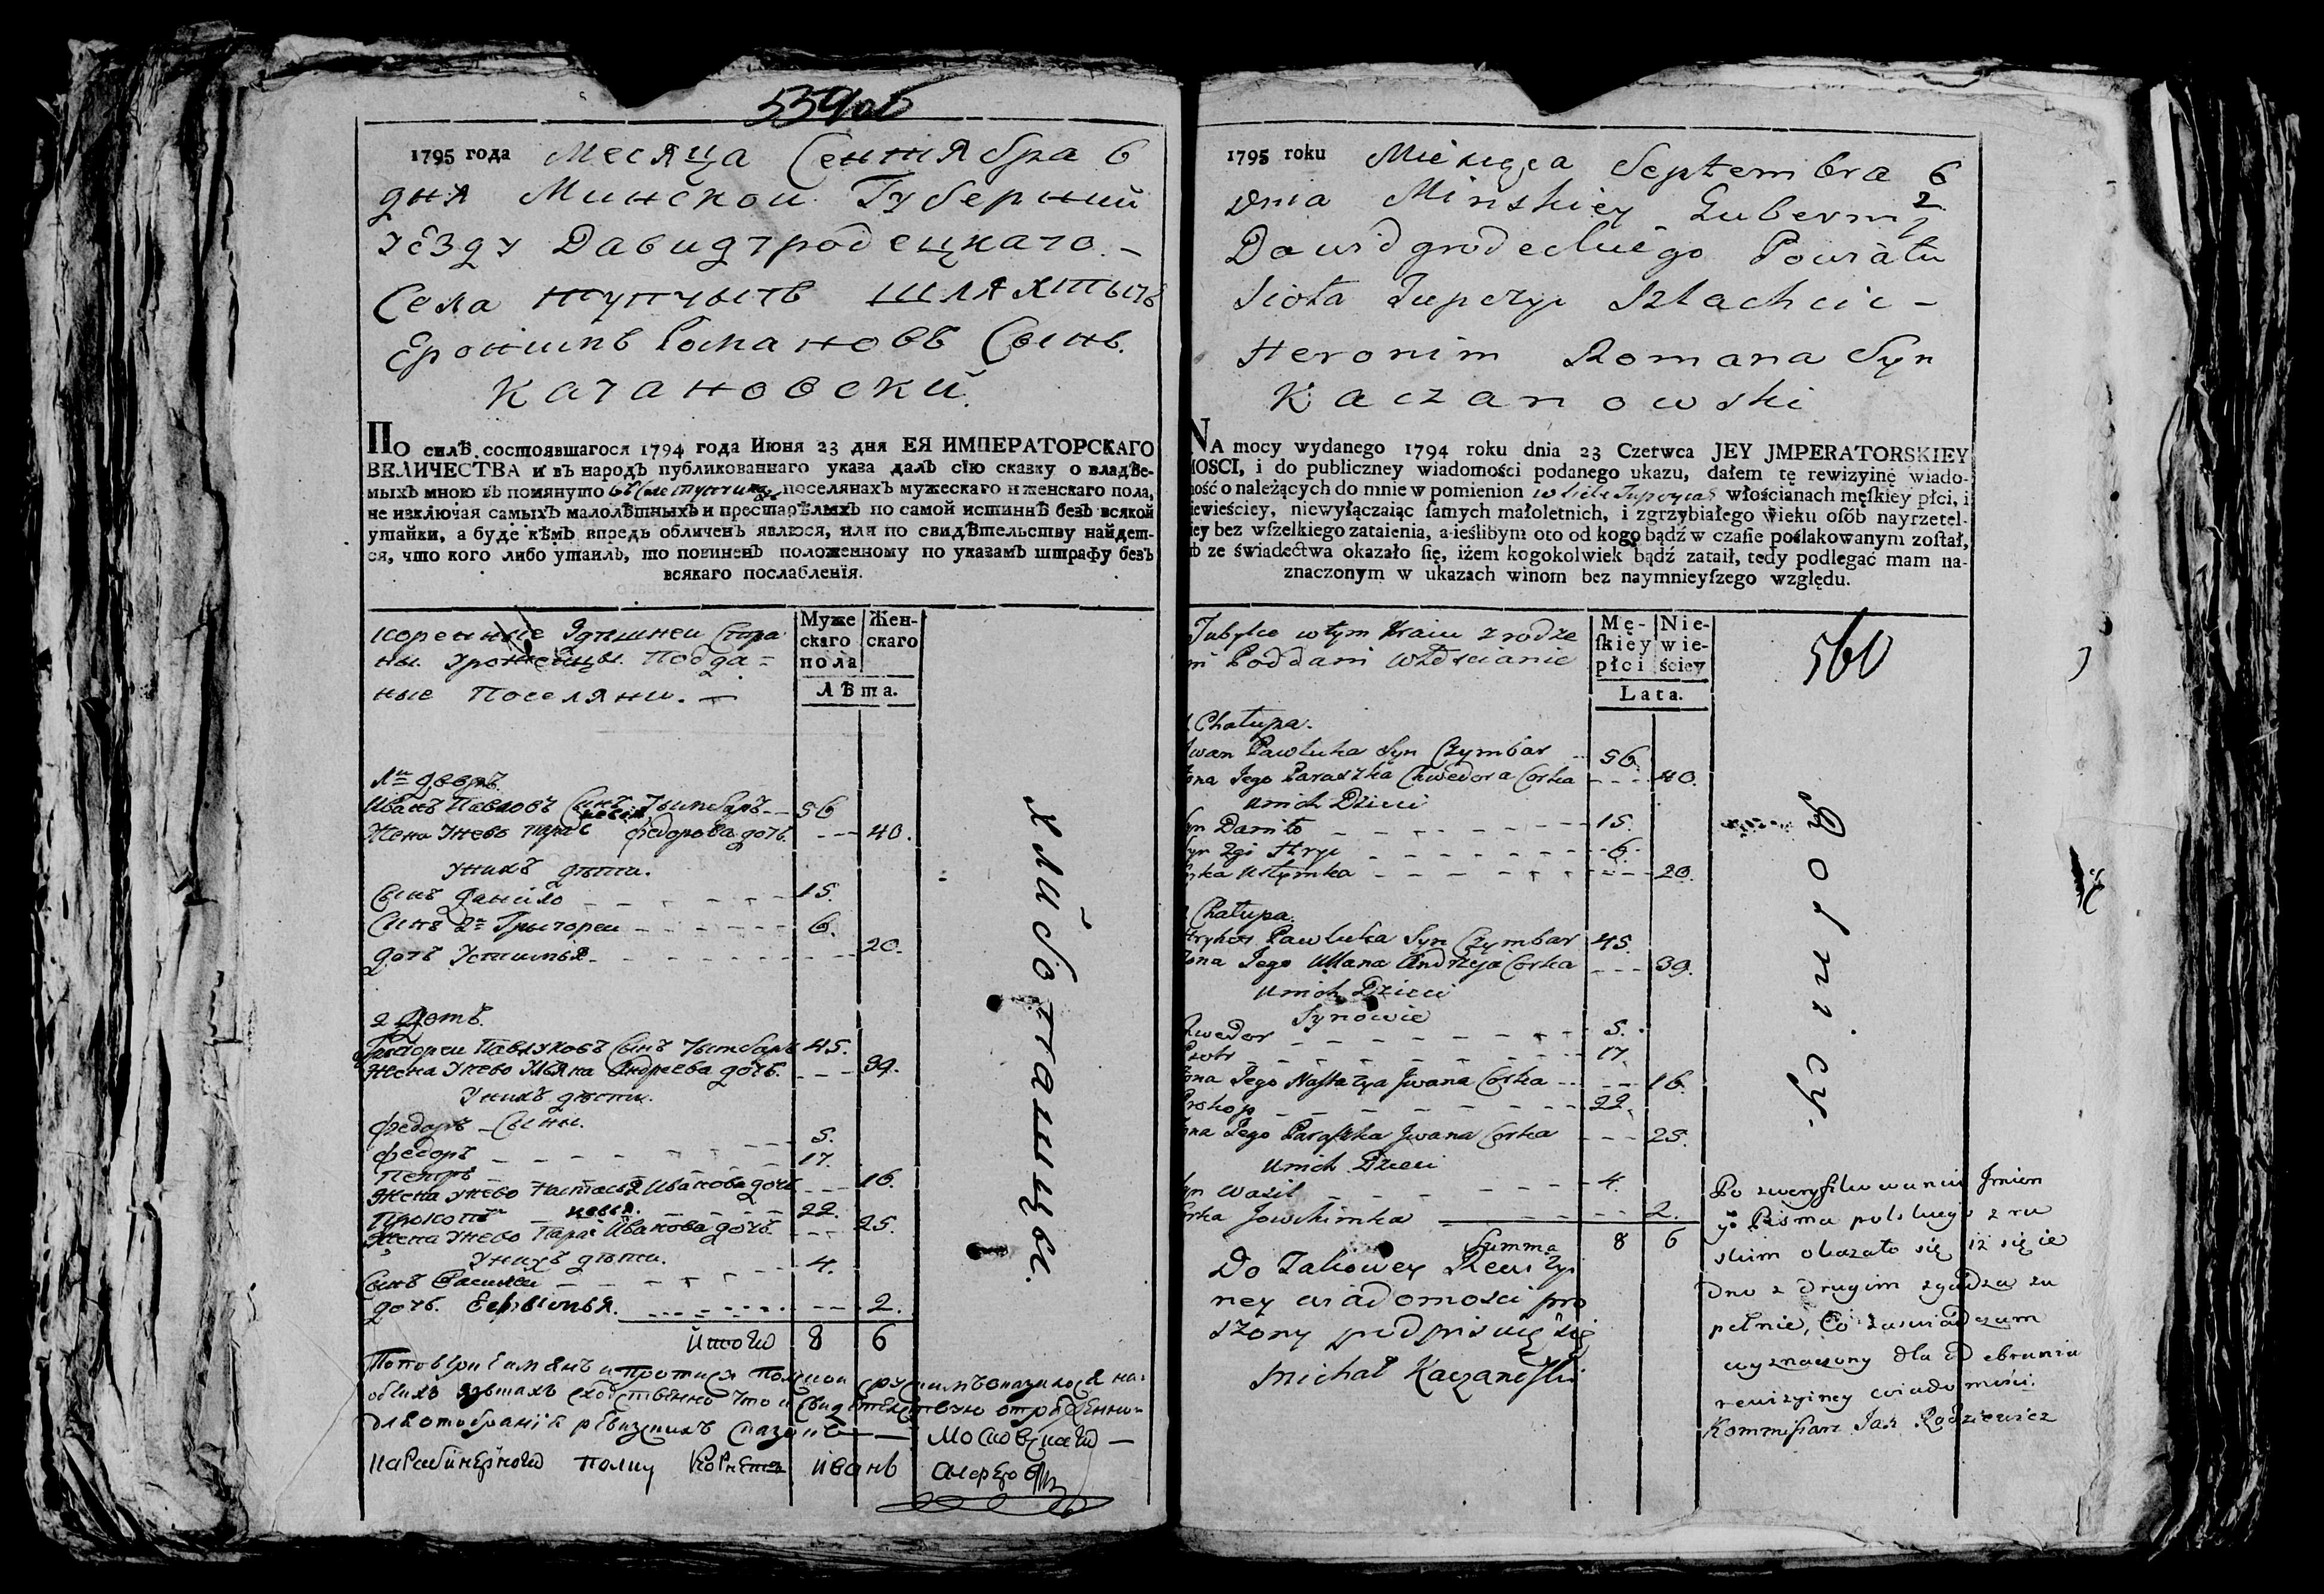 559 об
1795 года Месяца Сентября 6
дня Минской Губернии
уезду Давидгродецкаго –
Села тупчытъ шляхтычъ
Еронимъ Романовъ Сынъ.
Качановский.
По силѣ состоявшагося 1794 года Июня 23 дня ЕЯ ИМПЕРАТОРСКАГО
ВЕЛИЧЕСТВА и въ народъ публикованнаго указа далъ сїю сказку о владѣе-
мыхъ мною въ помянуто въ Селе поселянахъ мужескаго и женскаго пола,
не изключая самыхъ малолѣтныхъ и престарѣлыхъ по самой истиннѣ безъ всякой
утайки, а буде кѣмъ впредь обличенъ явлюся, или по свидѣтельству найдет-
ся, что кого либо утаилъ, то повиненъ положенному по указамъ штрафу безъ
всякаго послабленїя.
коренные здешней Стра
ны. Уроженцы. Подда=
ные Поселяни. —
Муже
скаго
пола
Жен-
скаго
Лѣта.
1й дворъ
Иванъ Павловъ Сынъ Чымбаръ 56
Жена Унево Парас кевея Федорова дочь. 40.
Унихъ дети.
Сынъ Данило 15.
Сынъ 2й Григорей 6.
дочь Устимья 20.
2 Домъ.
Григорей Павлуковъ Сынъ Чымбаръ 45.
Жена Унево Ульяна Андреева дочь. 39.
Унихъ дети.
Федоръ Сыны. 5.
Федоръ 17.
Петръ
Жена Унево Настасья Иванова дочь 16.
Прокопъ 22.
Жена Унево Парас кевея Иванова дочь. 25.
Унихъ дети.
Сынъ Василей 4.
дочь. Евфимья. 2.
Итого 8 6
Московскаго
Карабинернаго полку Корнетъ Иванъ
хлиботашцы.
1795 roku Miesiąca Septembra 6
Dnia Minskiey Guberni 2
Dawidgrodeckiego Powiatu
Sioła Tupczyc Szlachcic –
Heronim Romana Syn
Kaczanowski
NA mocy wydanego 1794 roku dnia 23 Czerwca JEY JMPERATORSKIEY
MOSCI, i do publiczney wiadomości podanego ukazu, dałem tę rewizyinę wiado-
mość o należących do mnie w pomienion w siele Tupczycach włościanach męſkiey płci, i
iewieściey, niewyłączaiąc ſamych małoletnich, i zgrzybiałego wieku oſób nayrzetel-
iey bez wſzelkiego zataienia, a ieślibym oto od kogo bądź w czaſie poślakowanym zoſtał,
b ze świadectwa okazało ſię, iżem kogokolwiek bądź zataił, tedy podlegać mam na-
znaczonym w ukazach winom bez naymnieyſzego względu.
Tubylce w tym Kraiu zrodze
ni Poddani Włościanie
Mę-
ſkiey
płci
Nie-
wie-
ściey
Lata.
560
Chałupa.
Iwan Pawluka Syn Czymbar 56
ona Jego Paraszka Chwedora Corka 40.
Unich Dzieci
yn Daniło 15.
yn 2gi Hryc 6.
rka Ustymka 20.
Chałupa.
Hryhor Pawluka Syn Czymbar 45.
ona Jego Ullana Andrzeja Corka 39.
Unich Dzieci
Synowie
Chwedor 5.
Piotr 17.
ona Jego Nastazya Jwana Corka 16.
Prokop 22.
ona Jego Paraszka Jwana Corka 25.
Unich Dzieci
yn Wasil 4.
rka Jowchimka 2.
Summa 8 6
Do Takowey Rewizyi
ney wiadomosci pro
szony podpisuię się
Michał Kaczanowski
Rolnicy.
Po zweryfikowaniu Jmion
go Pisma polskiego z ru
skim okazało się iż się ie
dno z drugim zgadza zu
pełnie, Co zaswiadczam
wyznaczony dla odebrania
rewizyiney wiadomości.
Kommissarz Jan Rodziewicz